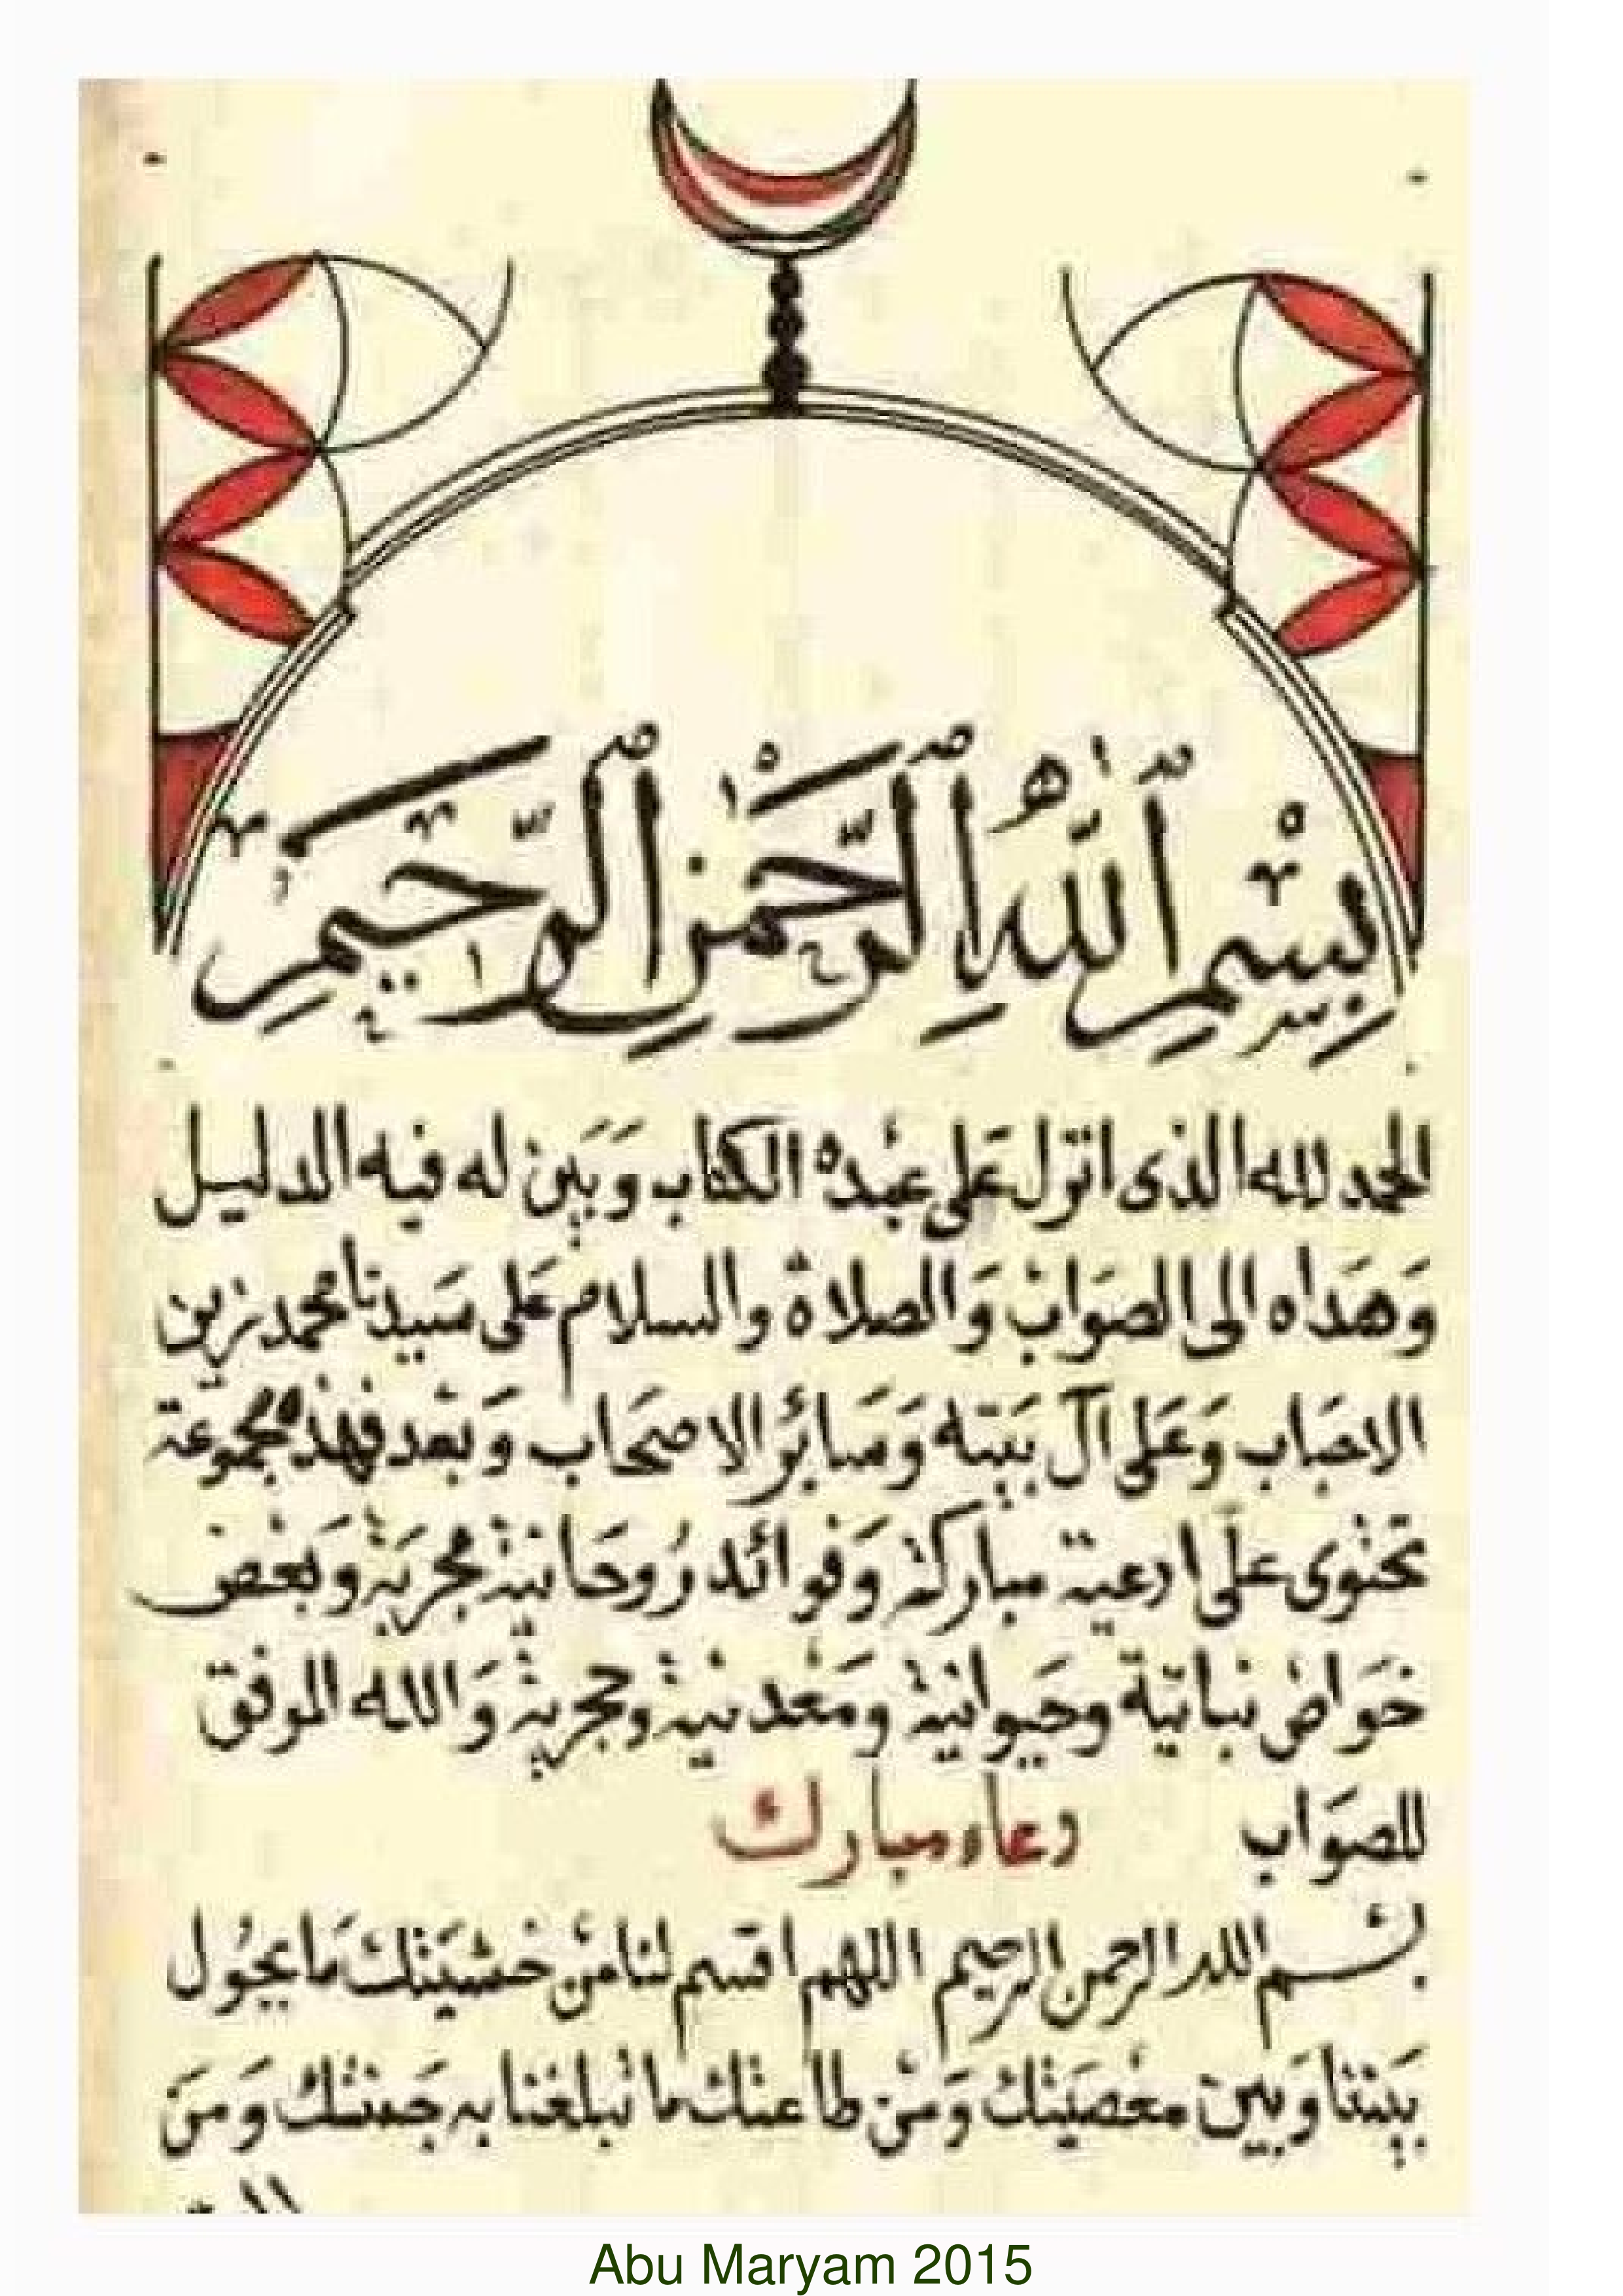 بِسْمِ ٱللَّهِ ٱلرَّحْمَٰنِ ٱلرَّحِيمِ
الحمد لله الذى انزل على عبده الكتاب وبين له فيه الدليل
وهداه الى الصواب والصلاة والسلام على سيدنا محمد زين
الاحباب وعلى آل بيته وسائر الاصحاب وبعد فهذه مجموعة
تحتوى على ادعية مباركة وفوائد روحانية مجربة وبعض
خواص نباتية وحيوانية ومعدنية وحجرية والله الموفق
للصواب دعاء مبارك
بسم الله الرحمن الرحيم اللهم اقسم لنا من خشيتك ما يحول
بيننا وبين معصيتك ومن طاعتك ما تبلغنا به جنتك ومن
Abu Maryam 2015